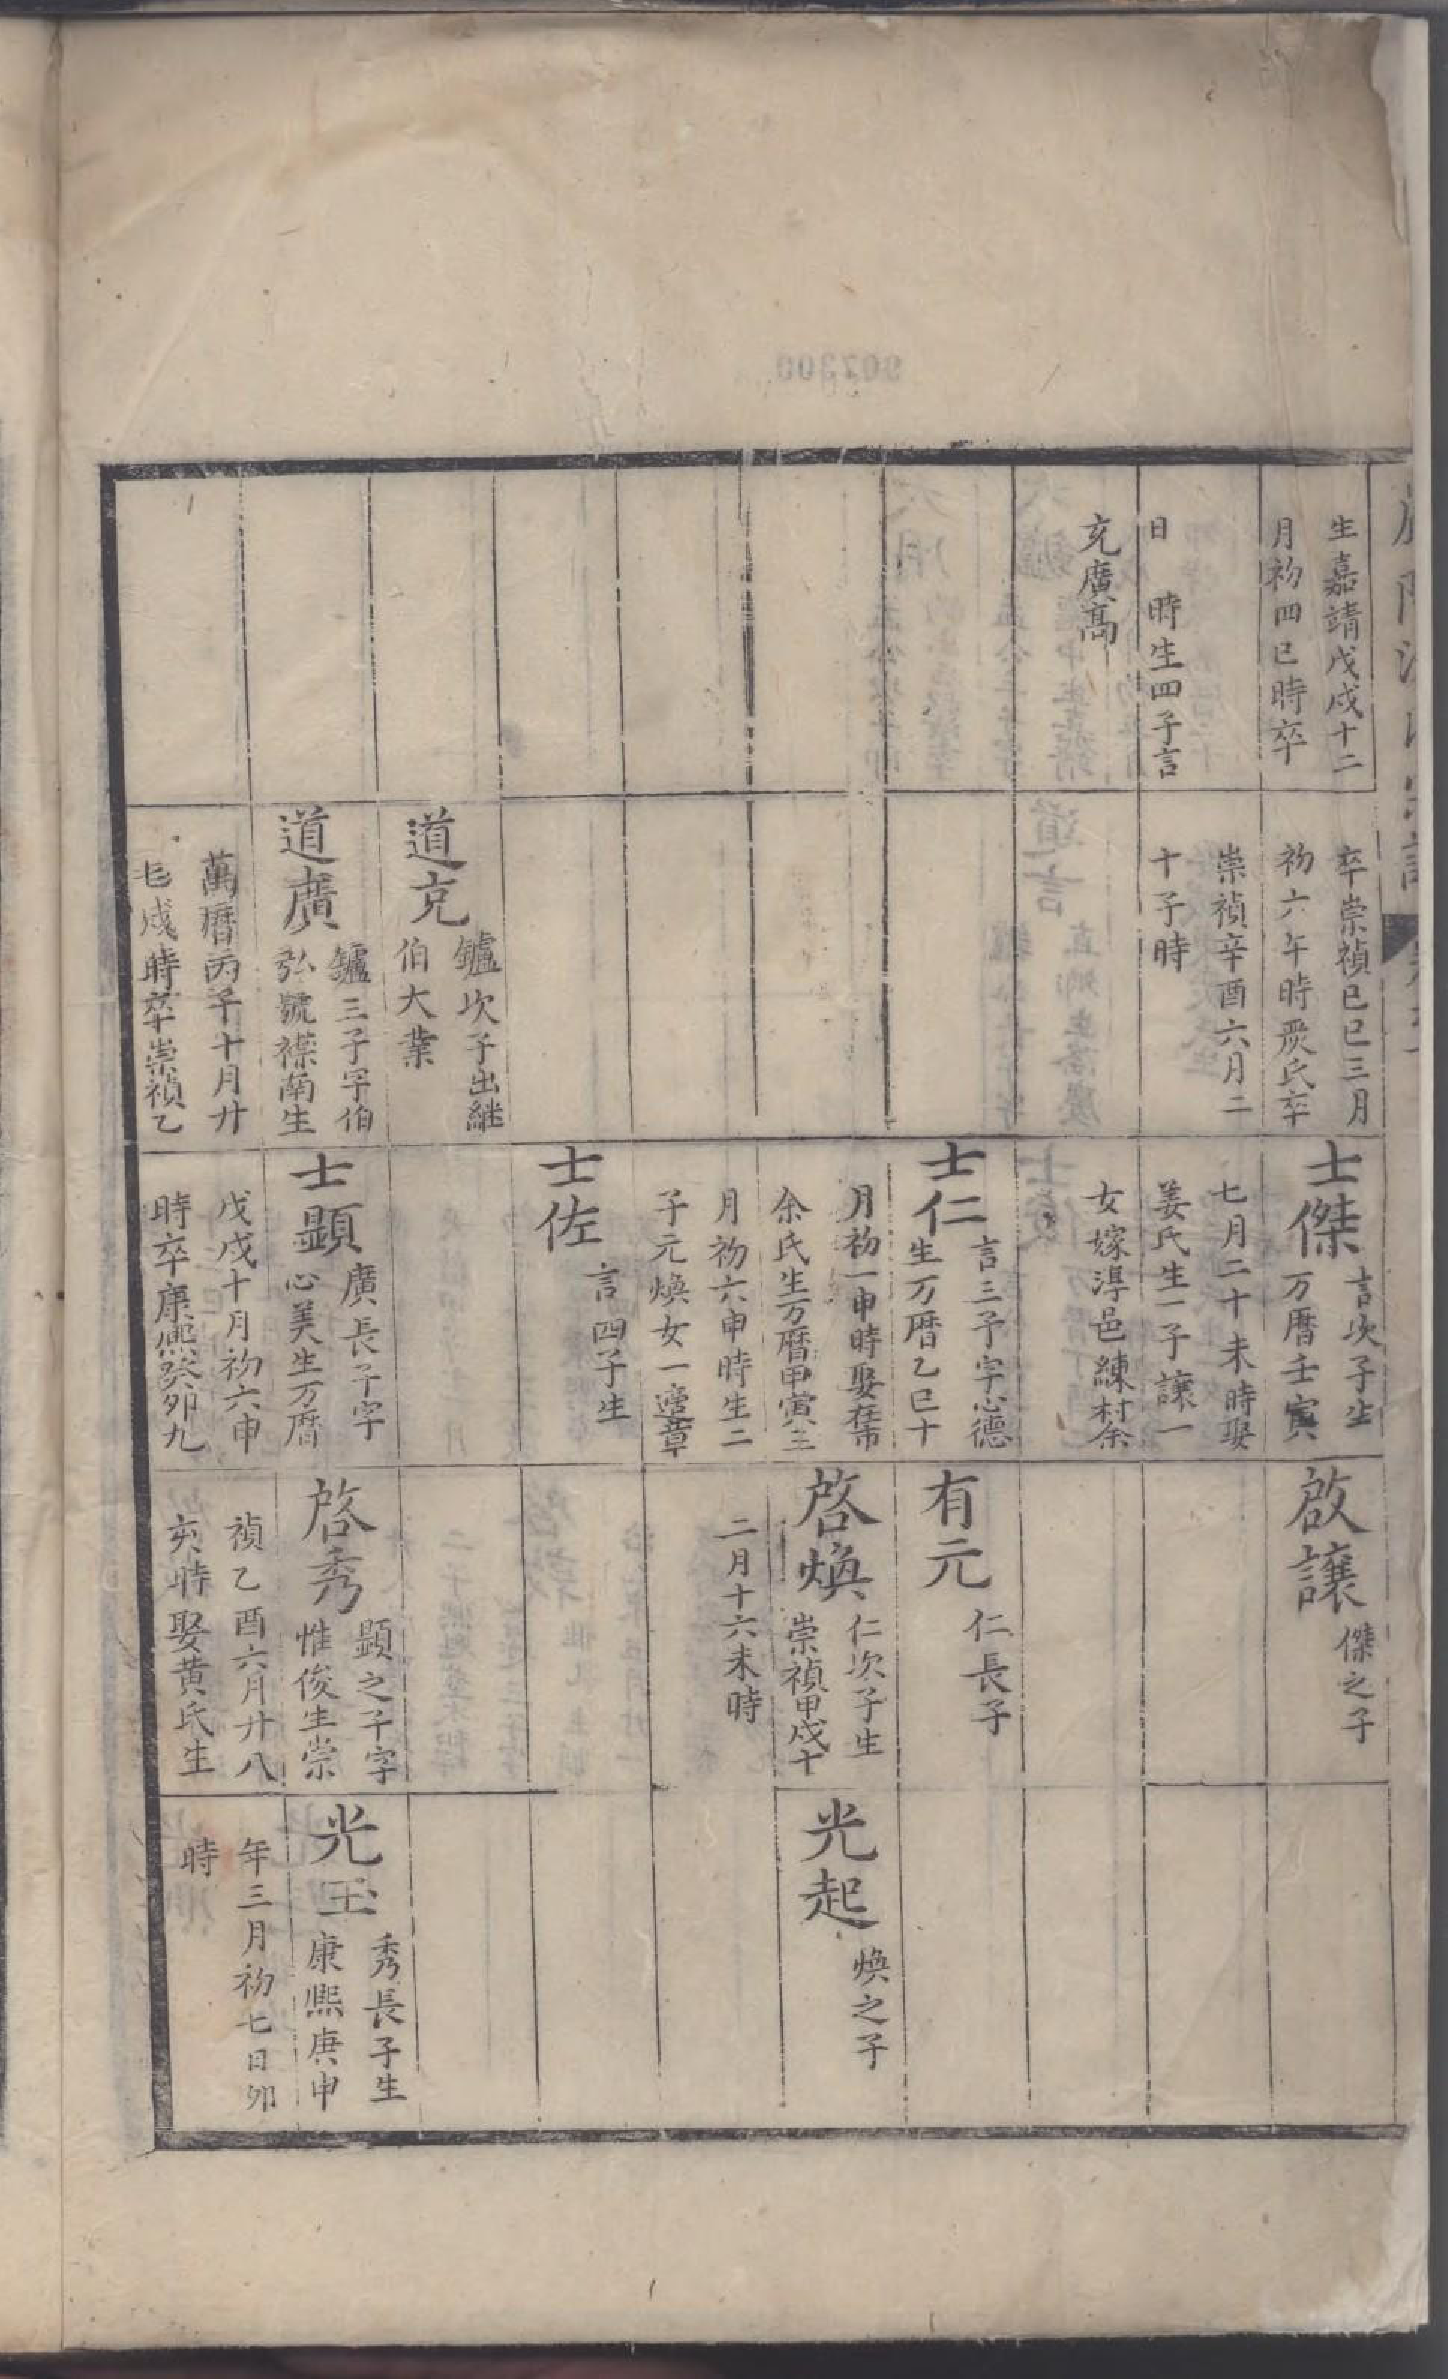 生嘉靖戊戌十二
月初四巳時卒
日　時生四子言
充廣高
卒崇禎己巳三月
初六午時炭氏卒
崇禎辛酉六月二
十子時
道充
鑪次子出継
伯大業
道廣
鑪三子字伯
弘號襟南生
萬曆丙子十月廿
七戌時卒崇禎乙
士傑
言次子生
万曆壬寅
七月二十未時娶
姜氏生一子讓一
女嫁淳邑練村余
士仁
言三子字心德
生万曆乙巳十
月初一申時娶
余氏生万曆甲寅三
月初六申時生二
子元煥女一
士佐
言四子生
士顕
廣長子字
心美生万曆
戊戌十月初六申
時卒康熙癸卯九
啟讓
傑之子
有元
仁長子
啓煥
仁次子生
崇禎甲戌十
二月十六未時
啓秀
顕之子字
惟俊生崇
禎乙酉六月廿八
亥時娶黄氏生
光起
煥之子
光玉
秀長子生
康熙庚申
年三月初七日卯
時